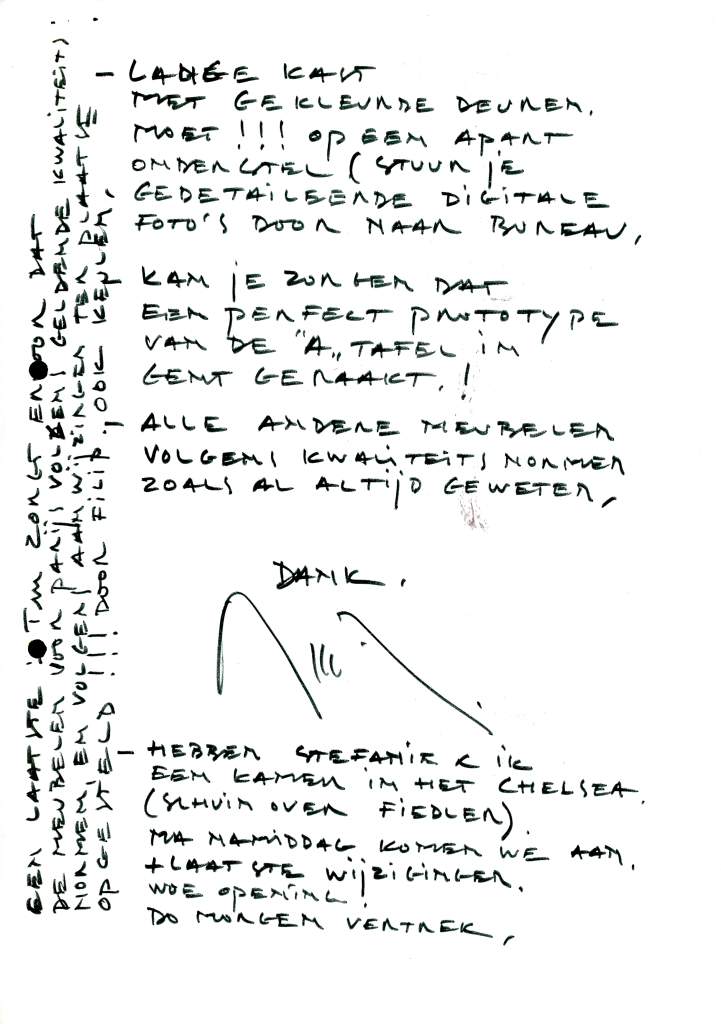 - LADEGE KAST
MET GEKLEURDE DEUREN.
MOET !!! OP EEN APART
ONDERSTEL (STUUR JE
GEDETAILEERDE DIGITALE
FOTO'S DOOR NAAR BUREAU,
KAN JE ZORGEN DAT
EEN PERFECT PROTOTYPE
VAN DE "A" TAFEL IN
GENT GERAAKT. !
- ALLE ANDERE MEUBELEN
VOLGENS KWALITEITSNORMEN
ZOALS AL ALTIJD GEWETEN,
DANK.
- HEBBEN STEFANIE & IK
EEN KAMER IN HET CHELSEA.
(SCHUIN OVER FIEDLER)
MA NAMIDDAG KOMEN WE AAN.
+ LAATSTE WIJZIGINGEN.
WOE OPENING!
DO MORGEN VERTREK,
EEN LAATSTE : TIM ZORGT ERVOOR DAT
DE MEUBELEN VOOR PARIJS VOLGENS GELDENDE KWALITEITS:
NORMEN, EN VOLGENS AANWIJZINGEN TER PLAATSE
OPGESTELD !!! DOOR FILIP, OOK KEULEN,